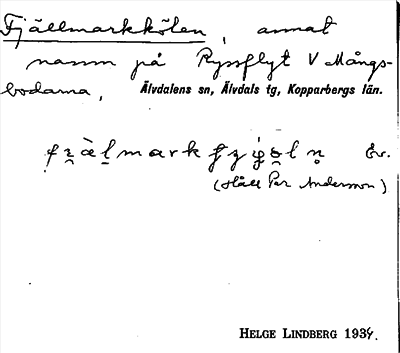 Fjällmarkkölen, annat
namn på Rysflyt V Mångs-
bodarna, Älvdalens sn, Älvdals tg, Kopparbergs län.
Ev.
(Håll Per Andersson)
HELGE LINDBERG 1934.